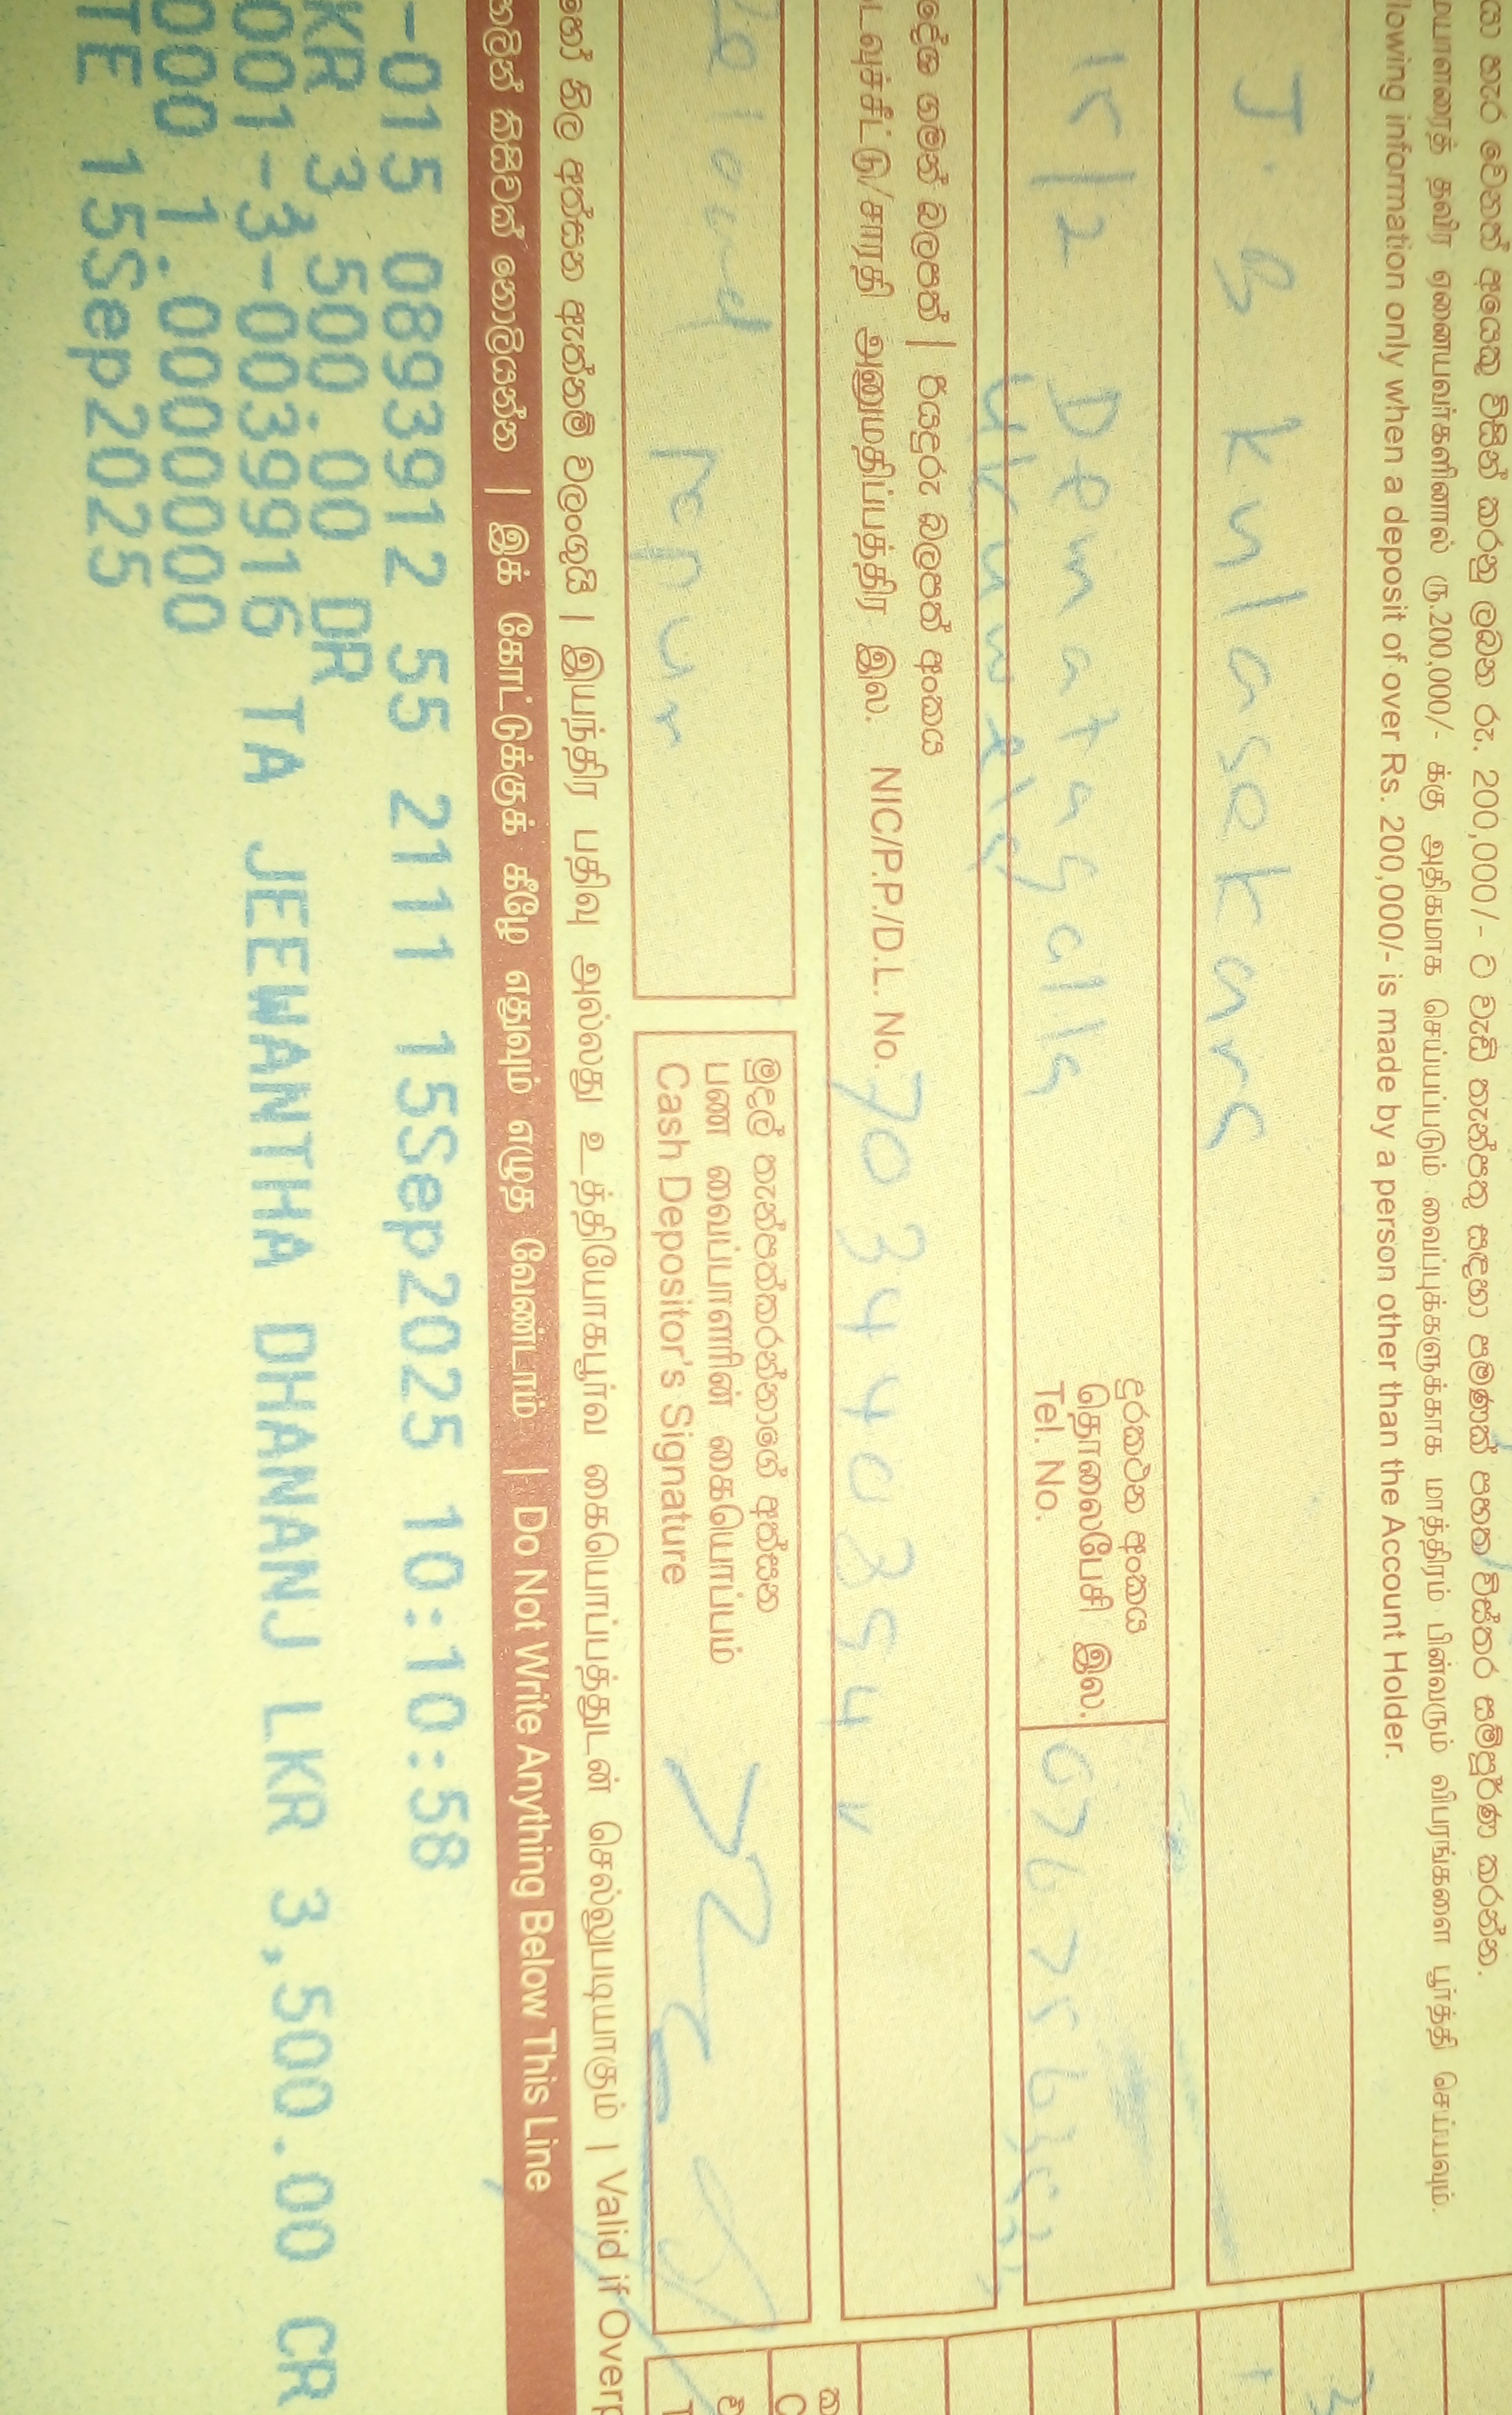 යා හැර වෙනත් අයෙකු විසින් කරනු ලබන රු. 200,000/- ට වැඩි තැන්පතු සඳහා පමණක් පහත විස්තර සම්පූර්ණ කරන්න.
மையாளரைத் தவிர ஏனையவர்களினால் ரூ.200,000/- க்கு அதிகமாக செய்யப்படும் வைப்புக்களுக்காக மாத்திரம் பின்வரும் விபரங்களை பூர்த்தி செய்யவும்.
llowing information only when a deposit of over Rs. 200,000/- is made by a person other than the Account Holder.
J. B kulasekara
15/2 Dematagalla
දුරකථන අංකය
தொலைபேசி இல.
Tel. No.
දේශ ගමන් බලපත් | රියදුරු බලපත් අංකය
டவுச்சீட்டு/சாரதி அனுமதிப்பத்திர இல. NIC/P.P./D.L. No.
මුදල් තැන්පත්කරන්නාගේ අත්සන
பண வைப்பாளரின் கையொப்பம்
Cash Depositor's Signature
හෝ නිල අත්සන ඇත්නම් වලංගුයි | இயந்திர பதிவு அல்லது உத்தியோகபூர்வ கையொப்பத்துடன் செல்லுபடியாகும் | Valid if Overp
හලින් කිසිවක් නොලියන්න | இக் கோட்டுக்குக் கீழே எதுவும் எழுத வேண்டாம் | Do Not Write Anything Below This Line
-015 0893912 55 2111 15Sep2025 10:10:58
KR 3 500.00 DR
001-3-0039916 TA JEEWANTHA DHANANJ LKR 3,500.00 CR
000 1.0000000
TE 15Sep2025